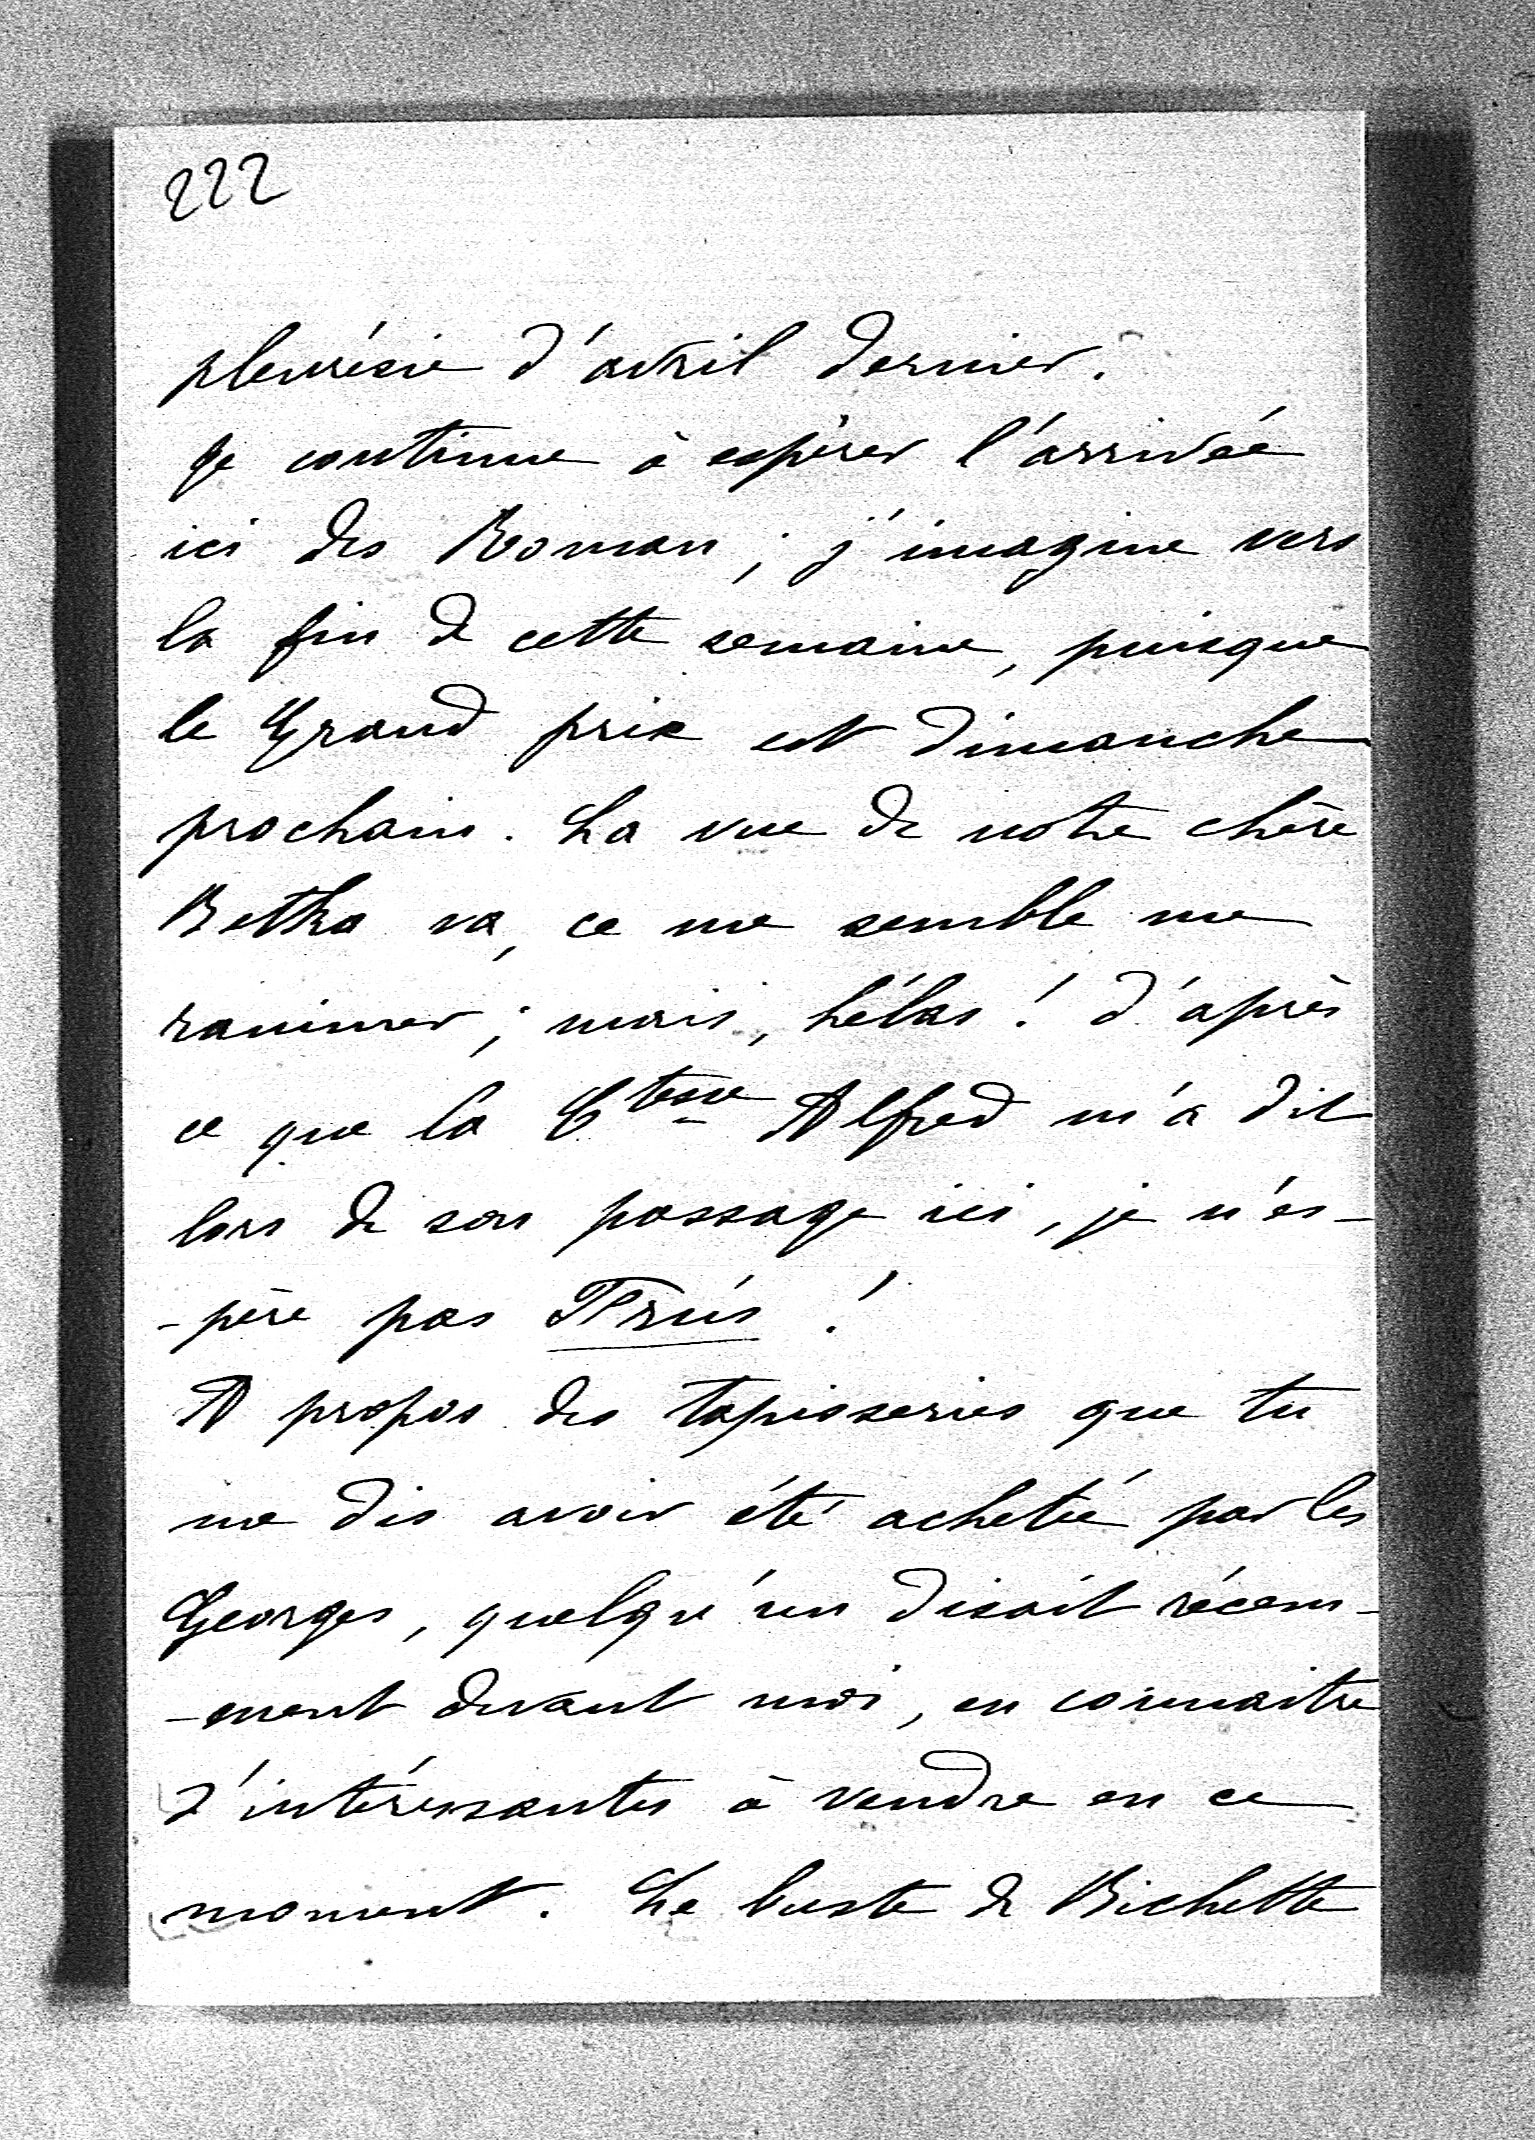 222
pleurésie d'avril dernier.
Je continue à espérer l'arrivée
ici des Roman ; j'imagine vers
la fin de cette semaine, puisque
le Grand prix est dimanche
prochain. La vue de notre chère
Betka va, ce me semble me
ranimer ; mais, hélas ! d'après
ce que la Ctesse Alfred m'a dit
lors de son passage ici, je n'es-
-père pas !
A propos des tapisseries que tu
me dis avoir été acheté par les
Georges, quelqu'un disait récem-
-ment devant moi, en connaitre
d'intéressantes à vendre en ce
moment. Le buste de Bichette